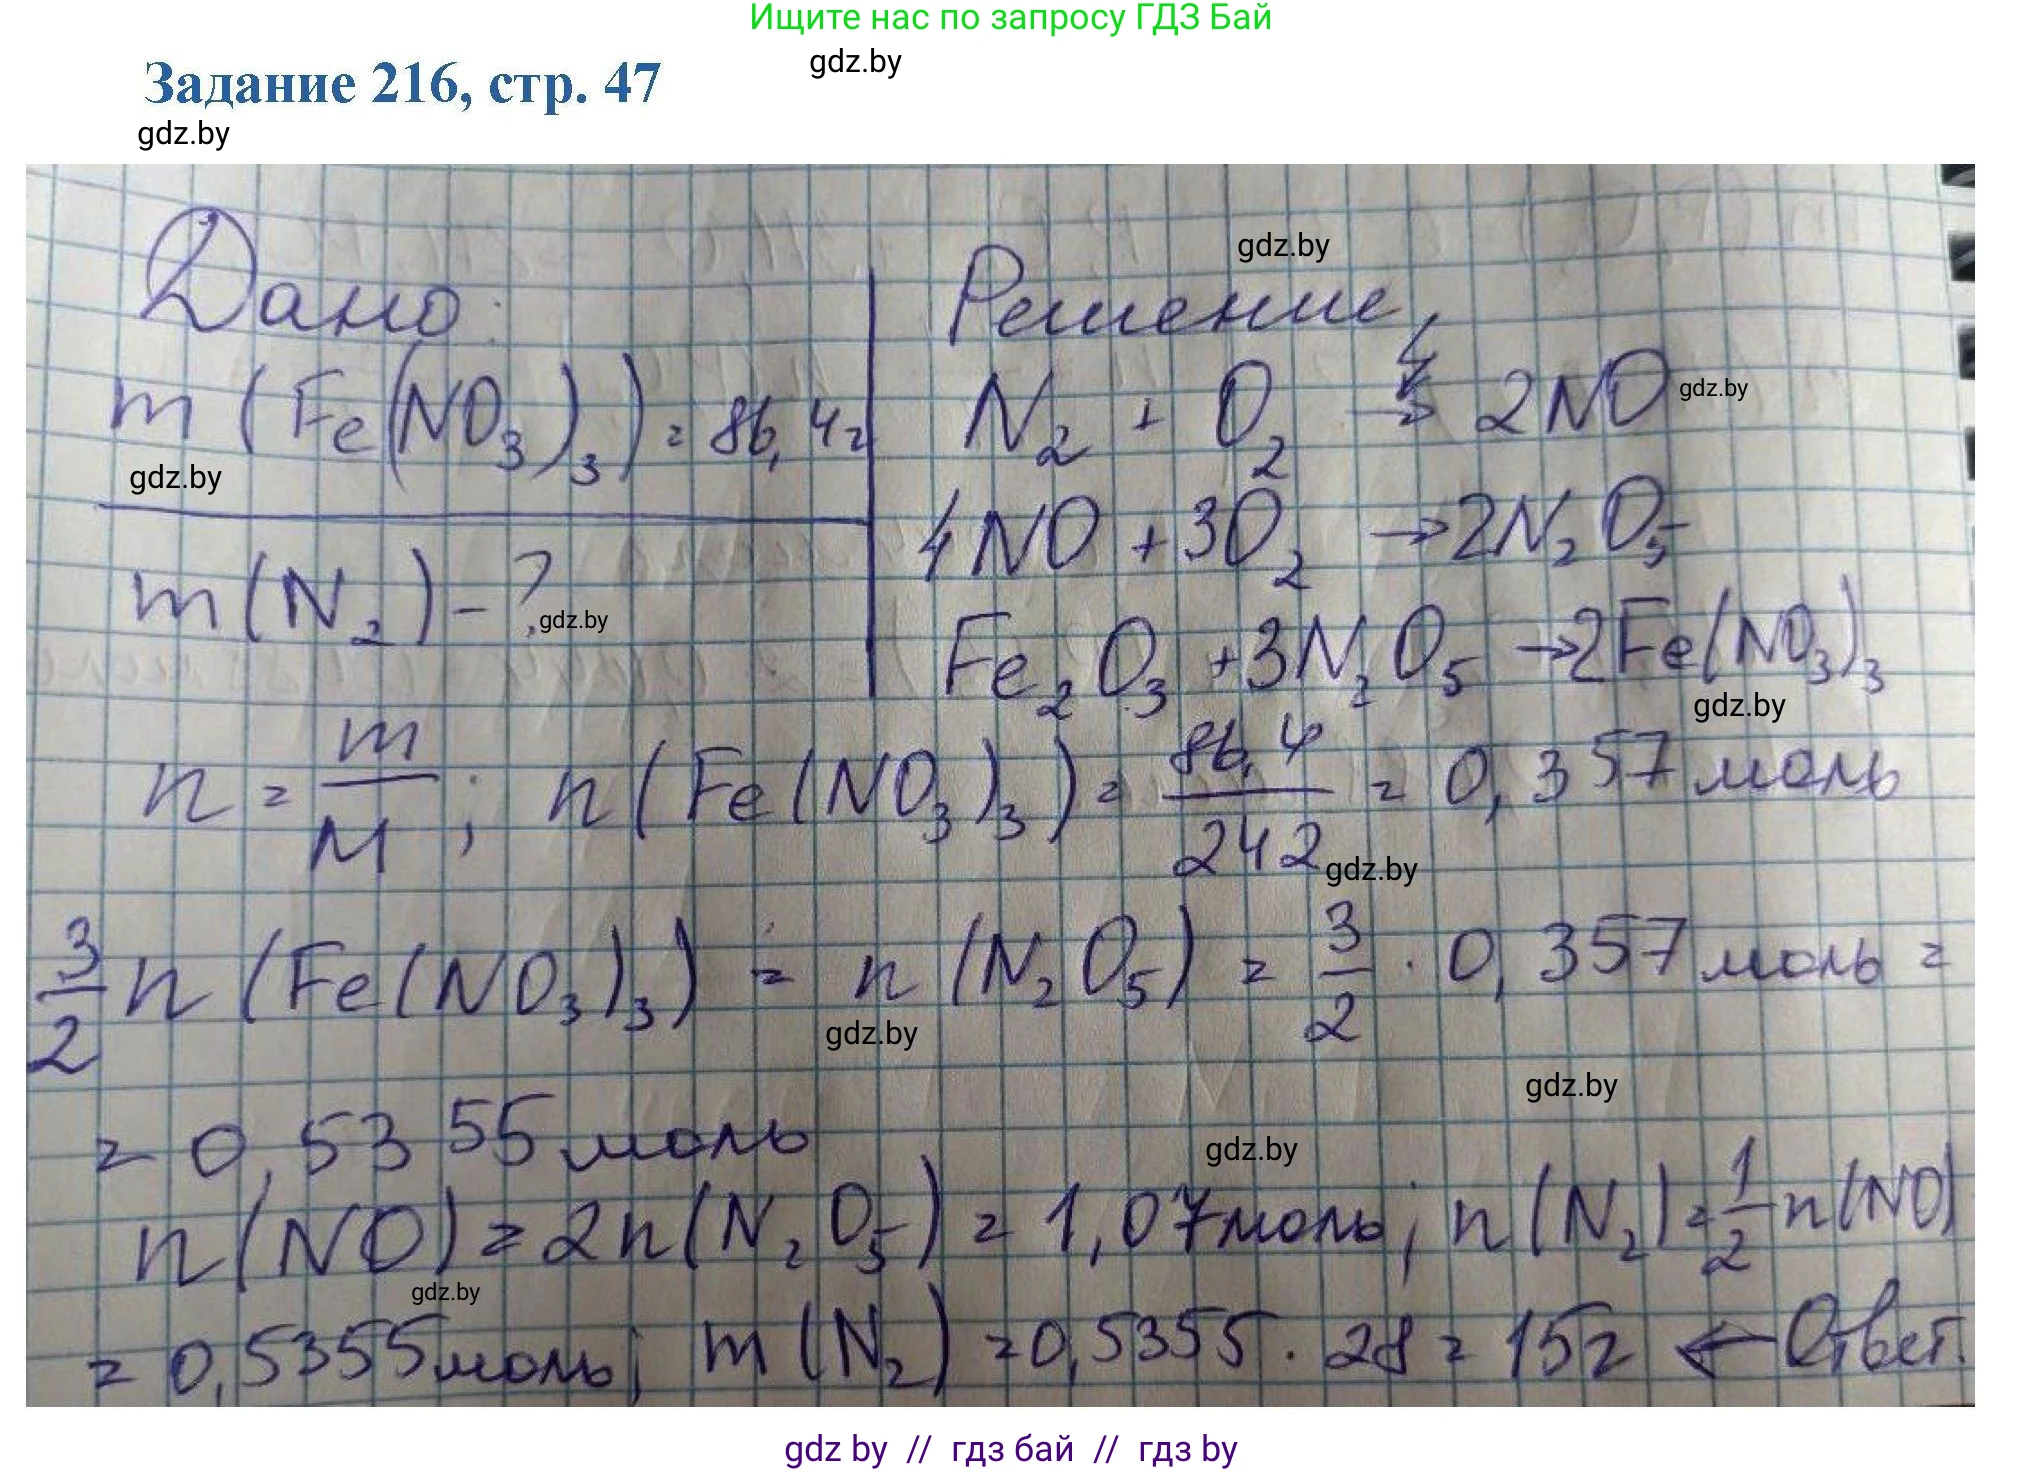 Ищите нас по запросу ГДЗ Бай
gdz.by
Задание 216, стр. 47
gdz.by
gdz.by
Дано:
m(Fe(NO₃)₃) = 86,4г
gdz.by
m(N₂) - ?
gdz.by
Решение
N₂ + O₂ → 2NO
gdz.by
4NO + 3O₂ → 2N₂O₅
Fe₂O₃ + 3N₂O₅ → 2Fe(NO₃)₃
gdz.by
n = m/M ; n(Fe(NO₃)₃) = 86,4/242 = 0,357 моль
gdz.by
3/2 n(Fe(NO₃)₃) = n(N₂O₅) = 3/2 · 0,357 моль =
gdz.by
gdz.by
= 0,5355 моль
gdz.by
n(NO) = 2n(N₂O₅) = 1,07 моль; n(N₂) = 1/2 n(NO)
gdz.by
= 0,5355 моль; m(N₂) = 0,5355 · 28 = 15г ← Ответ.
gdz by // гдз бай // гдз by